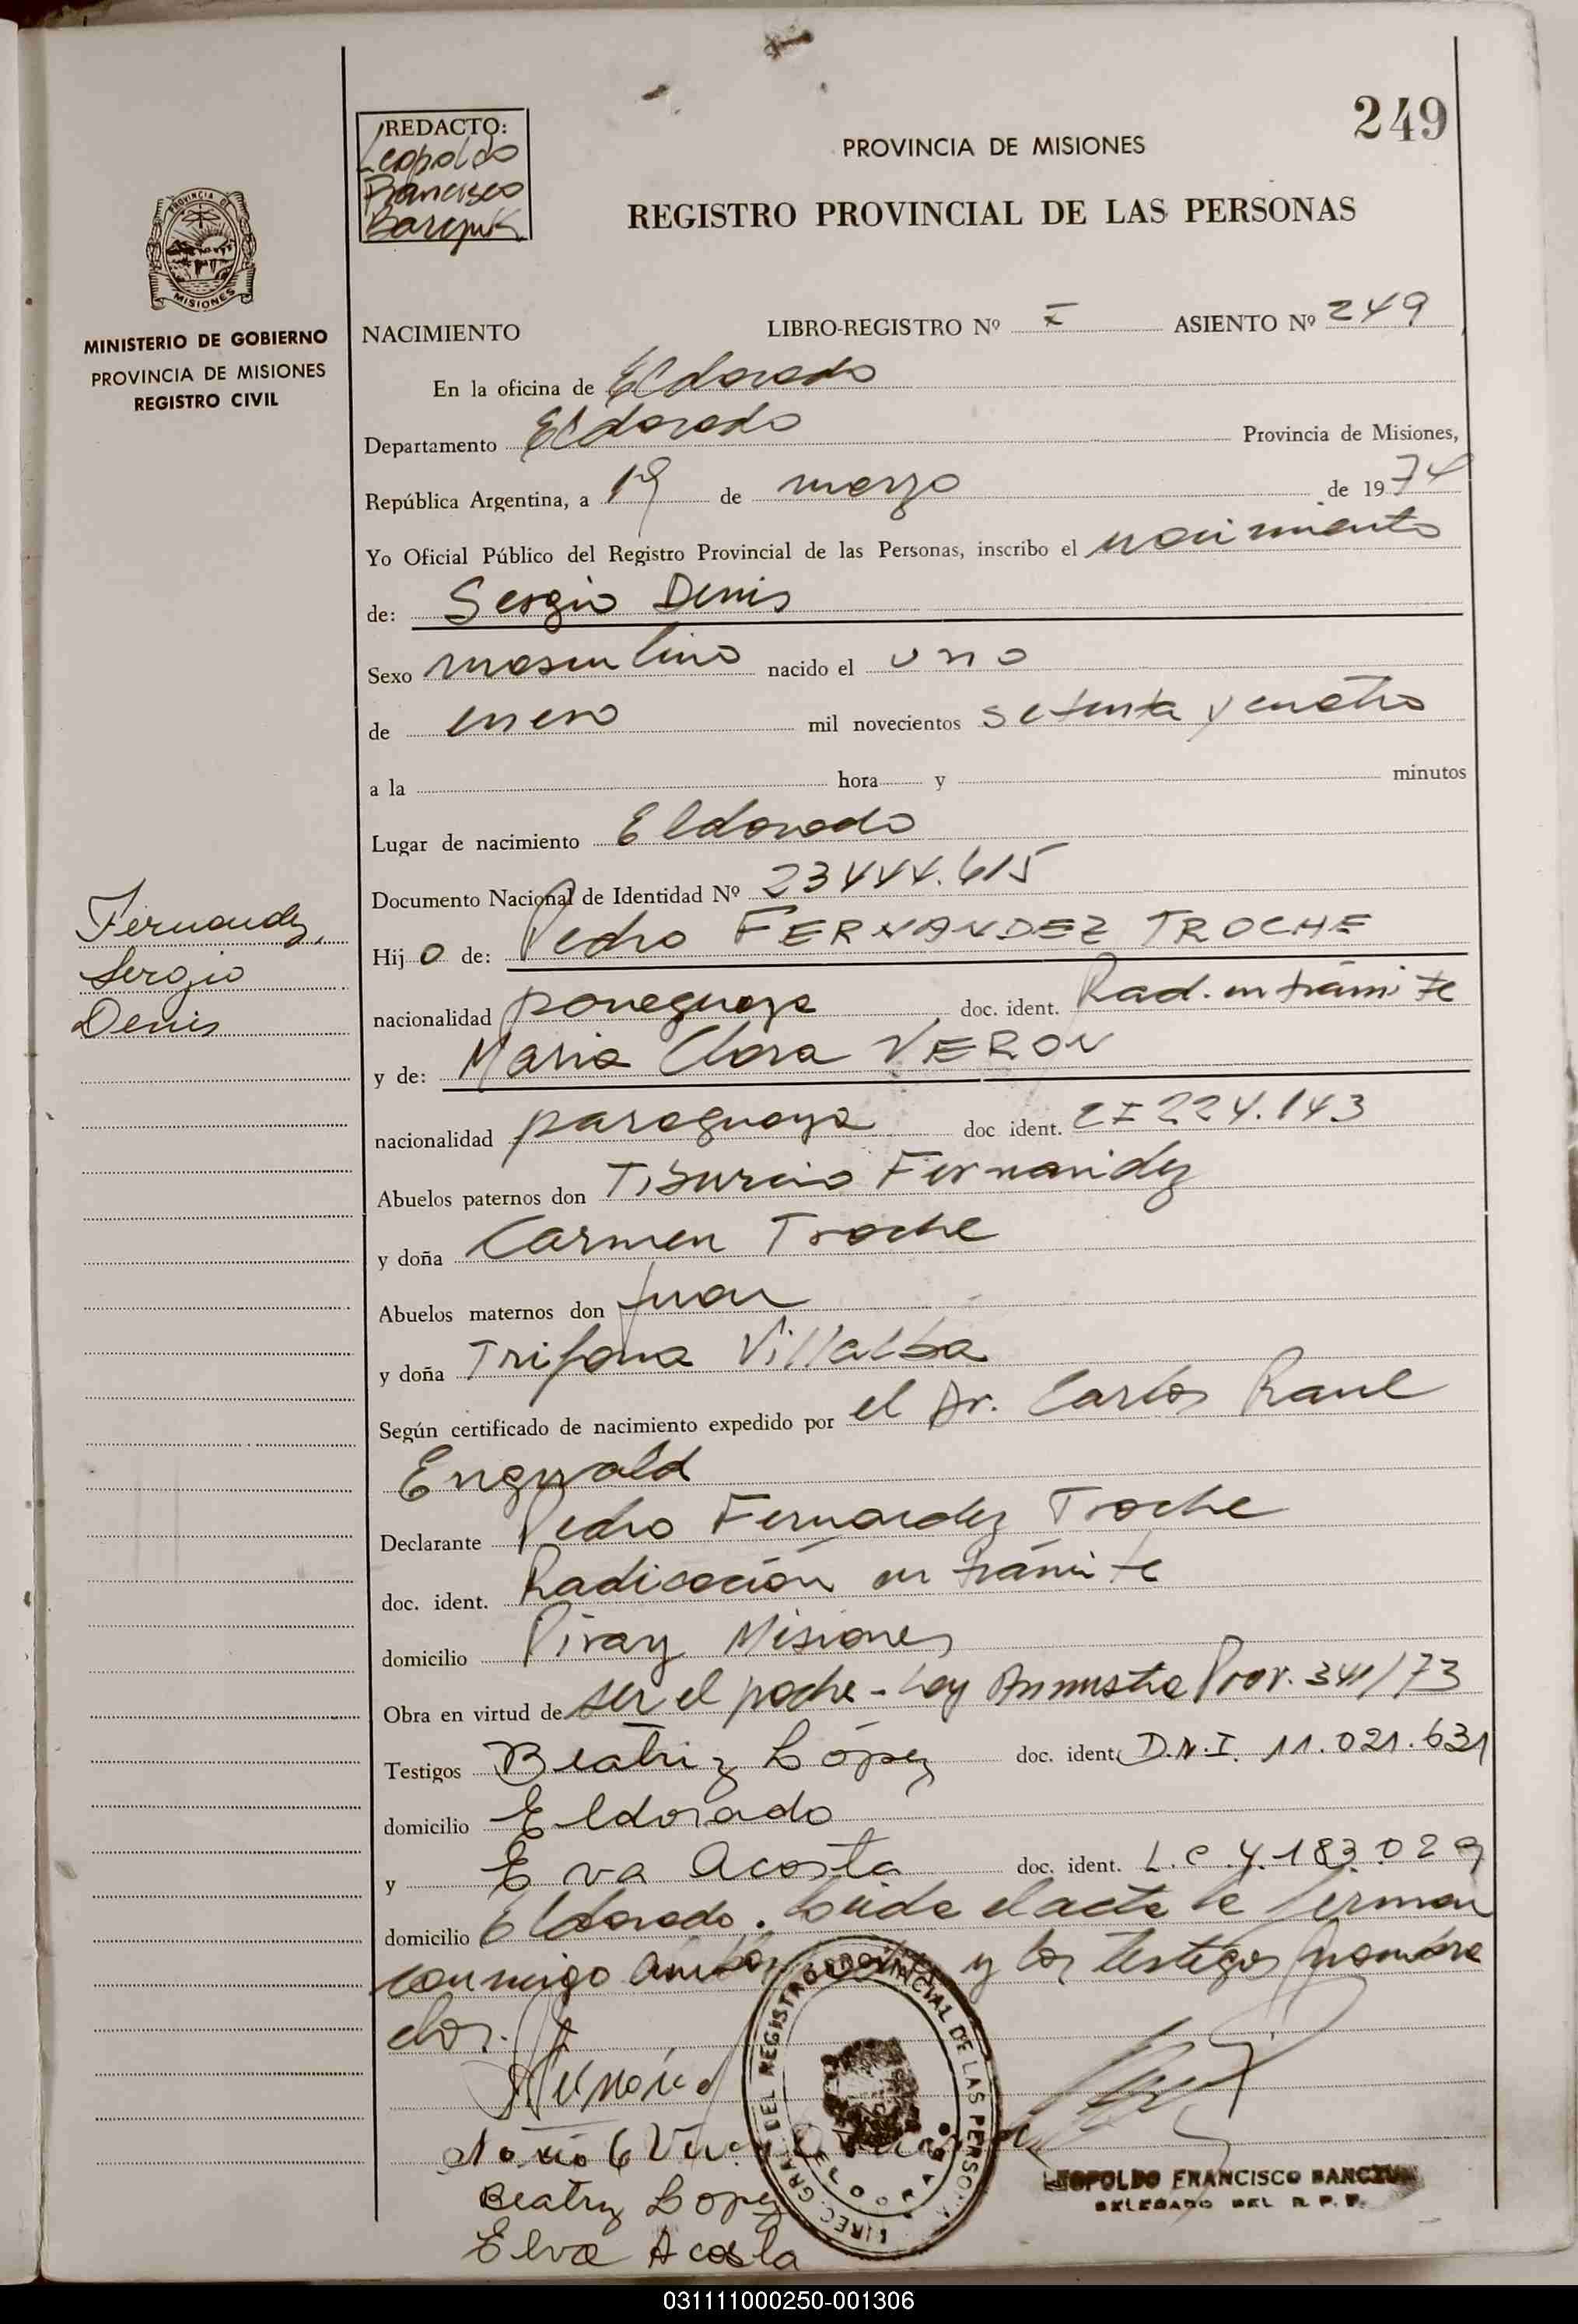 249
REDACTO:
Leopoldo
Francisco
PROVINCIA DE MISIONES
REGISTRO PROVINCIAL DE LAS PERSONAS
PROVINCIA DE
MISIONES
MINISTERIO DE GOBIERNO
PROVINCIA DE MISIONES
REGISTRO CIVIL
NACIMIENTO LIBRO-REGISTRO Nº I ASIENTO Nº 249
En la oficina de Eldorado
Departamento Eldorado Provincia de Misiones,
República Argentina, a 19 de marzo de 1974
Yo Oficial Público del Registro Provincial de las Personas, inscribo el nacimiento
de: Sergio Denis
Sexo masculino nacido el uno
de enero mil novecientos setenta y cuatro
a la hora y minutos
Lugar de nacimiento Eldorado
Documento Nacional de Identidad Nº 23444.615
Fernandez,
Sergio
Denis
Hijo de: Pedro FERNANDEZ TROCHE
nacionalidad paraguaya doc. ident. Rad. en trámite
y de: Maria Clara VERON
nacionalidad paraguaya doc ident. CI 224.143
Abuelos paternos don Tiburcio Fernandez
y doña Carmen Troche
Abuelos maternos don Juan
y doña Trifona Villalba
Según certificado de nacimiento expedido por el Dr. Carlos Raul
Engwald
Declarante Pedro Fernandez Troche
doc. ident. Radicación en trámite
domicilio Piray Misiones
Obra en virtud de ser el padre - Ley Amnistia Prov. 341/73
Testigos Beatriz López doc. ident. D.N.I. 11.021.631
domicilio Eldorado
y Elva Acosta doc. ident. L.C 4.183.029
domicilio Eldorado. Leida el acta la firman
conmigo ambos y los testigos nombra
dos.
DIREC. GRAL. DEL REGISTRO PROVINCIAL DE LAS PERSONAS
ELDORADO
Beatriz Lopez
Elva Acosta
LEOPOLDO FRANCISCO
DELEGADO DEL R. P. P.
031111000250-001306